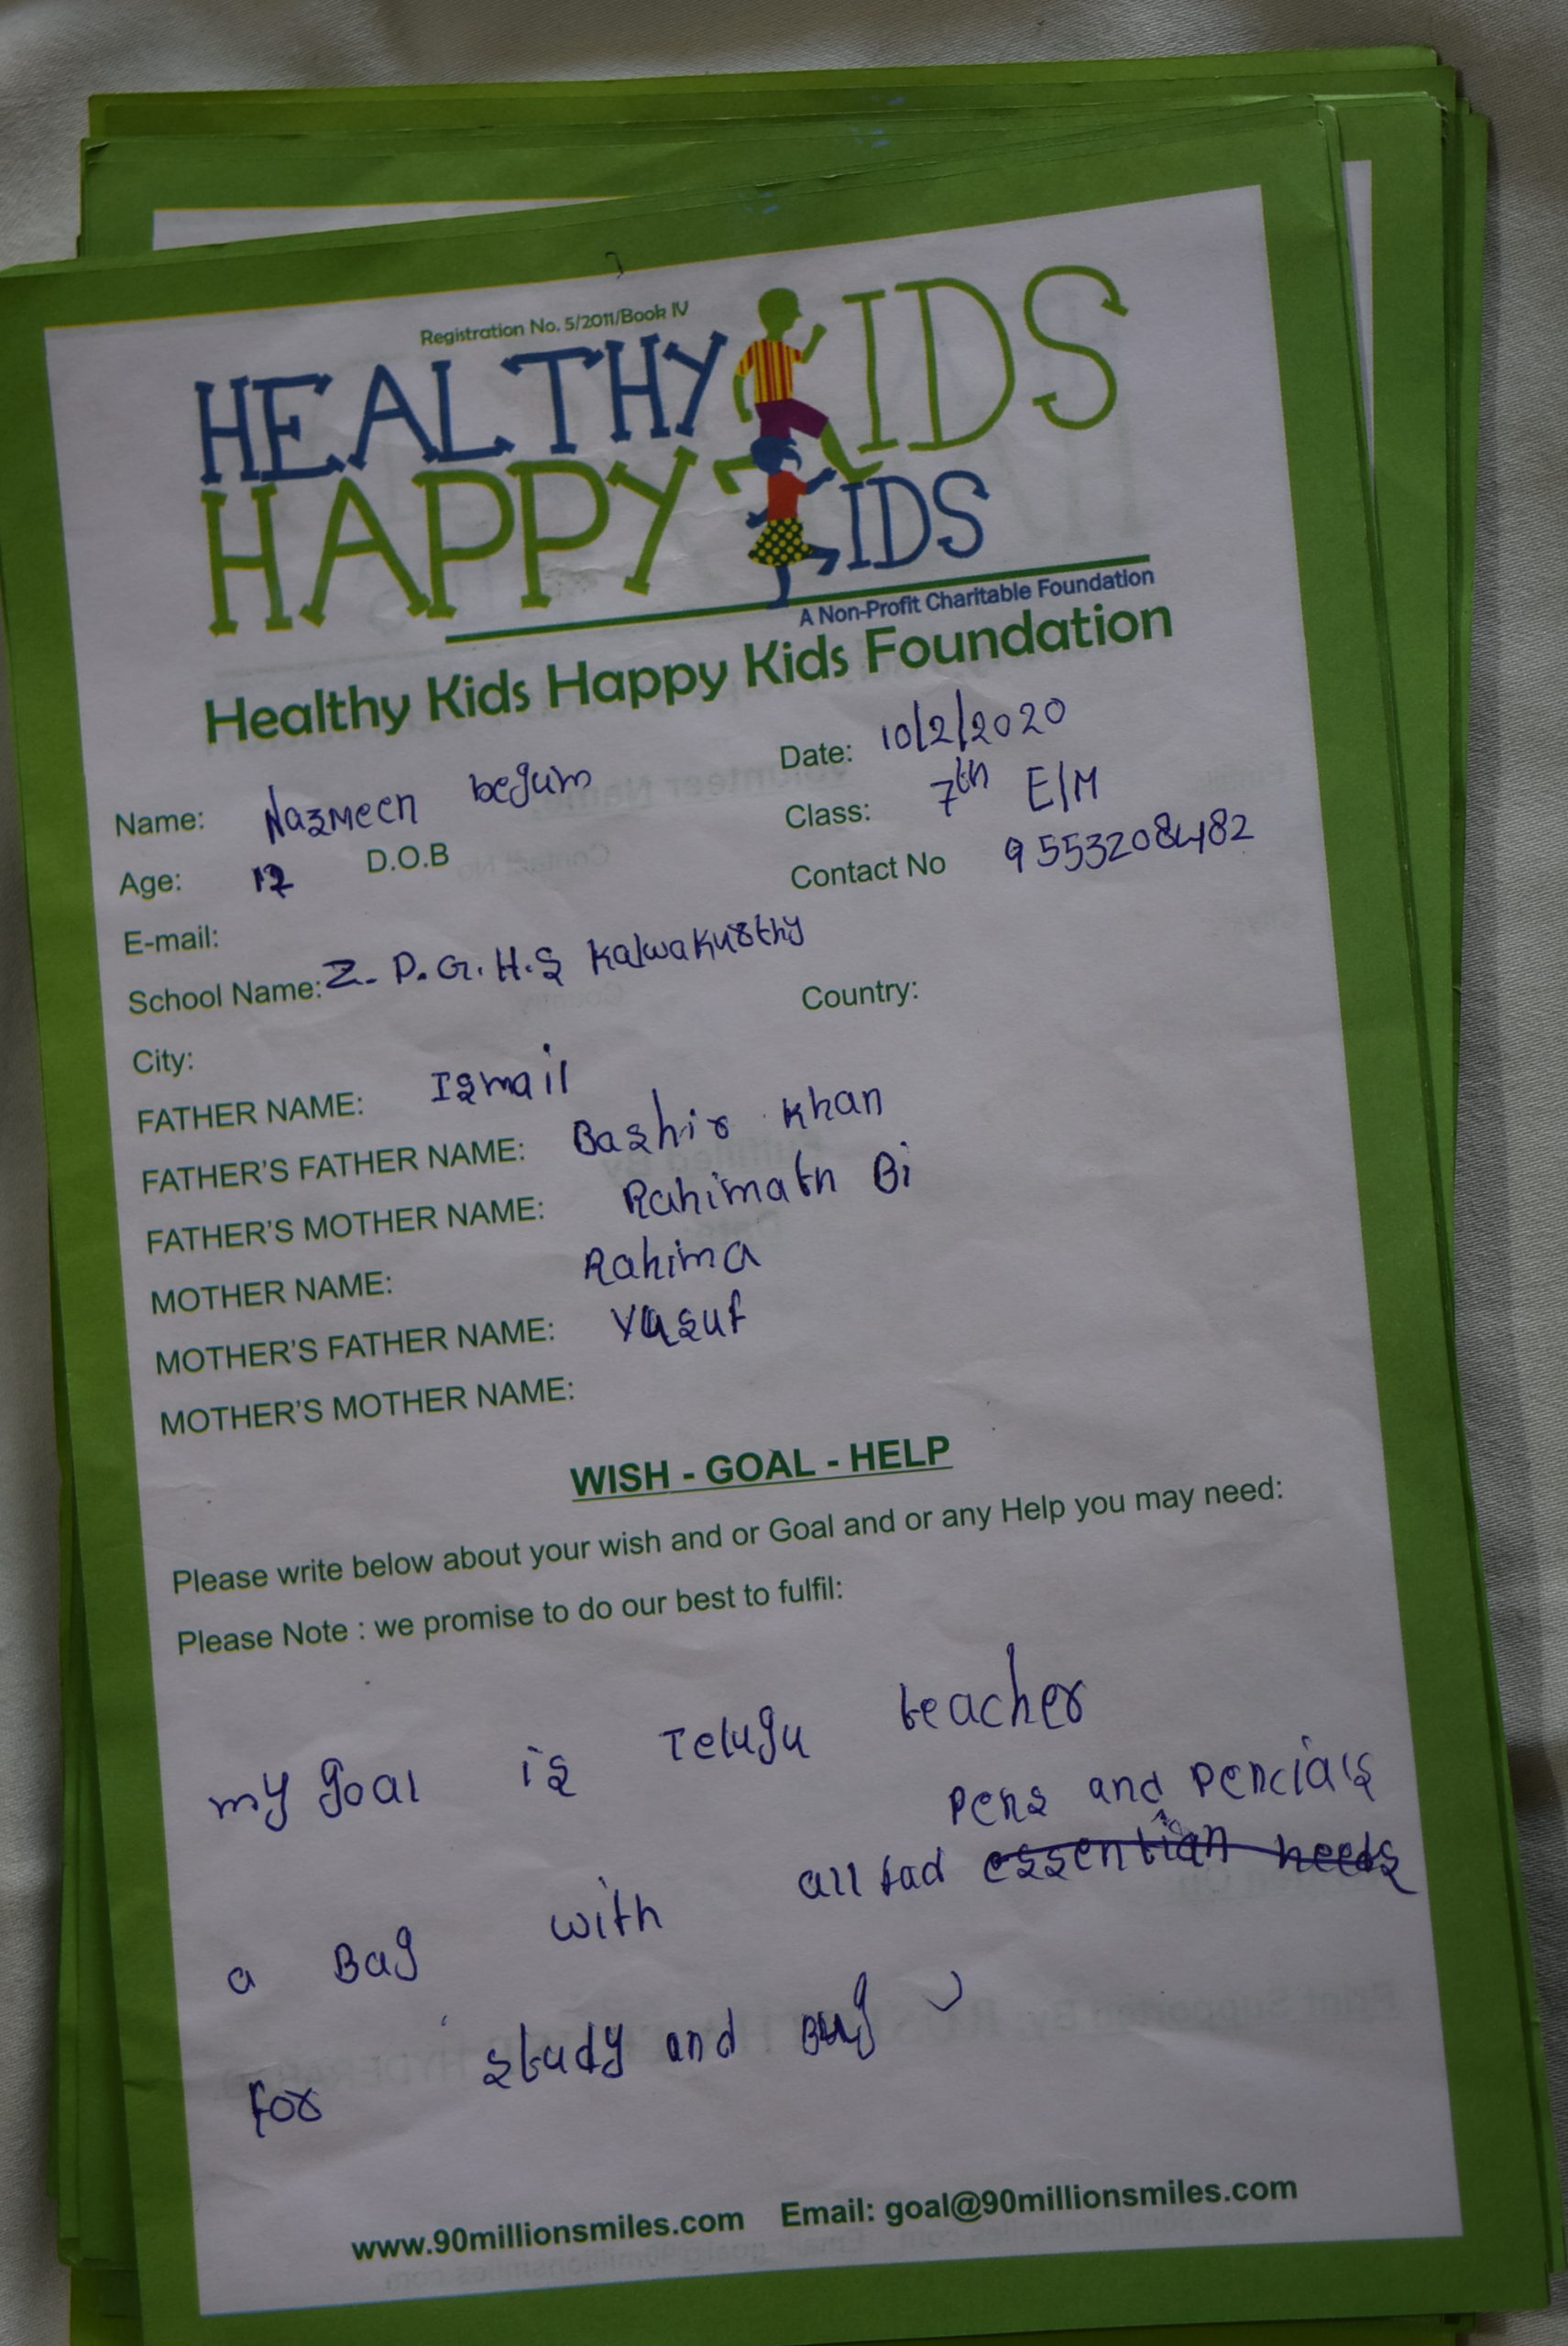 Registration No. 5/2011/Book IV
HEALTHY KIDS
HAPPY KIDS
A Non-Profit Charitable Foundation
Healthy Kids Happy Kids Foundation
Name: Nazmeen begum Date: 10/2/2020
Age: 12 D.O.B Class: 7th E/M
E-mail: Contact No 9553208482
School Name: Z. P. G. H. S Kalwakurthy
City: Country:
FATHER NAME: Ismail
FATHER'S FATHER NAME: Bashir Khan
FATHER'S MOTHER NAME: Rahimath Bi
MOTHER NAME: Rahima
MOTHER'S FATHER NAME: Yusuf
MOTHER'S MOTHER NAME:
WISH - GOAL - HELP
Please write below about your wish and or Goal and or any Help you may need:
Please Note : we promise to do our best to fulfil:
my goal is Telugu teacher
Pens and Pencials
a Bag with all essential needs
for study and
www.90millionsmiles.com Email: goal@90millionsmiles.com